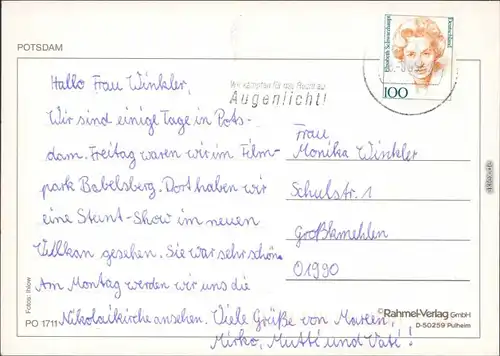 POTSDAM
Hallo Frau Winkler,
Wir sind einige Tage in Pots-
dam. Freitag waren wir im Film-
park Babelsberg. Dort haben wir
eine Stunt-Show im neuen
Vulkan gesehen. Sie war sehr schön.
Am Montag werden wir uns die
Nikolaikirche ansehen. Viele Grüße von Mareen,
Mirko, Mutti und Vati!
Wir kämpfen für das Recht auf
Augenlicht!
Elisabeth Schwarzhaupt
Deutschland
100
Frau
Monika Winkler
Schulstr. 1
Großkmehlen
01990
Fotos:
PO 1711
Rahmel-Verlag GmbH
D-50259 Pulheim